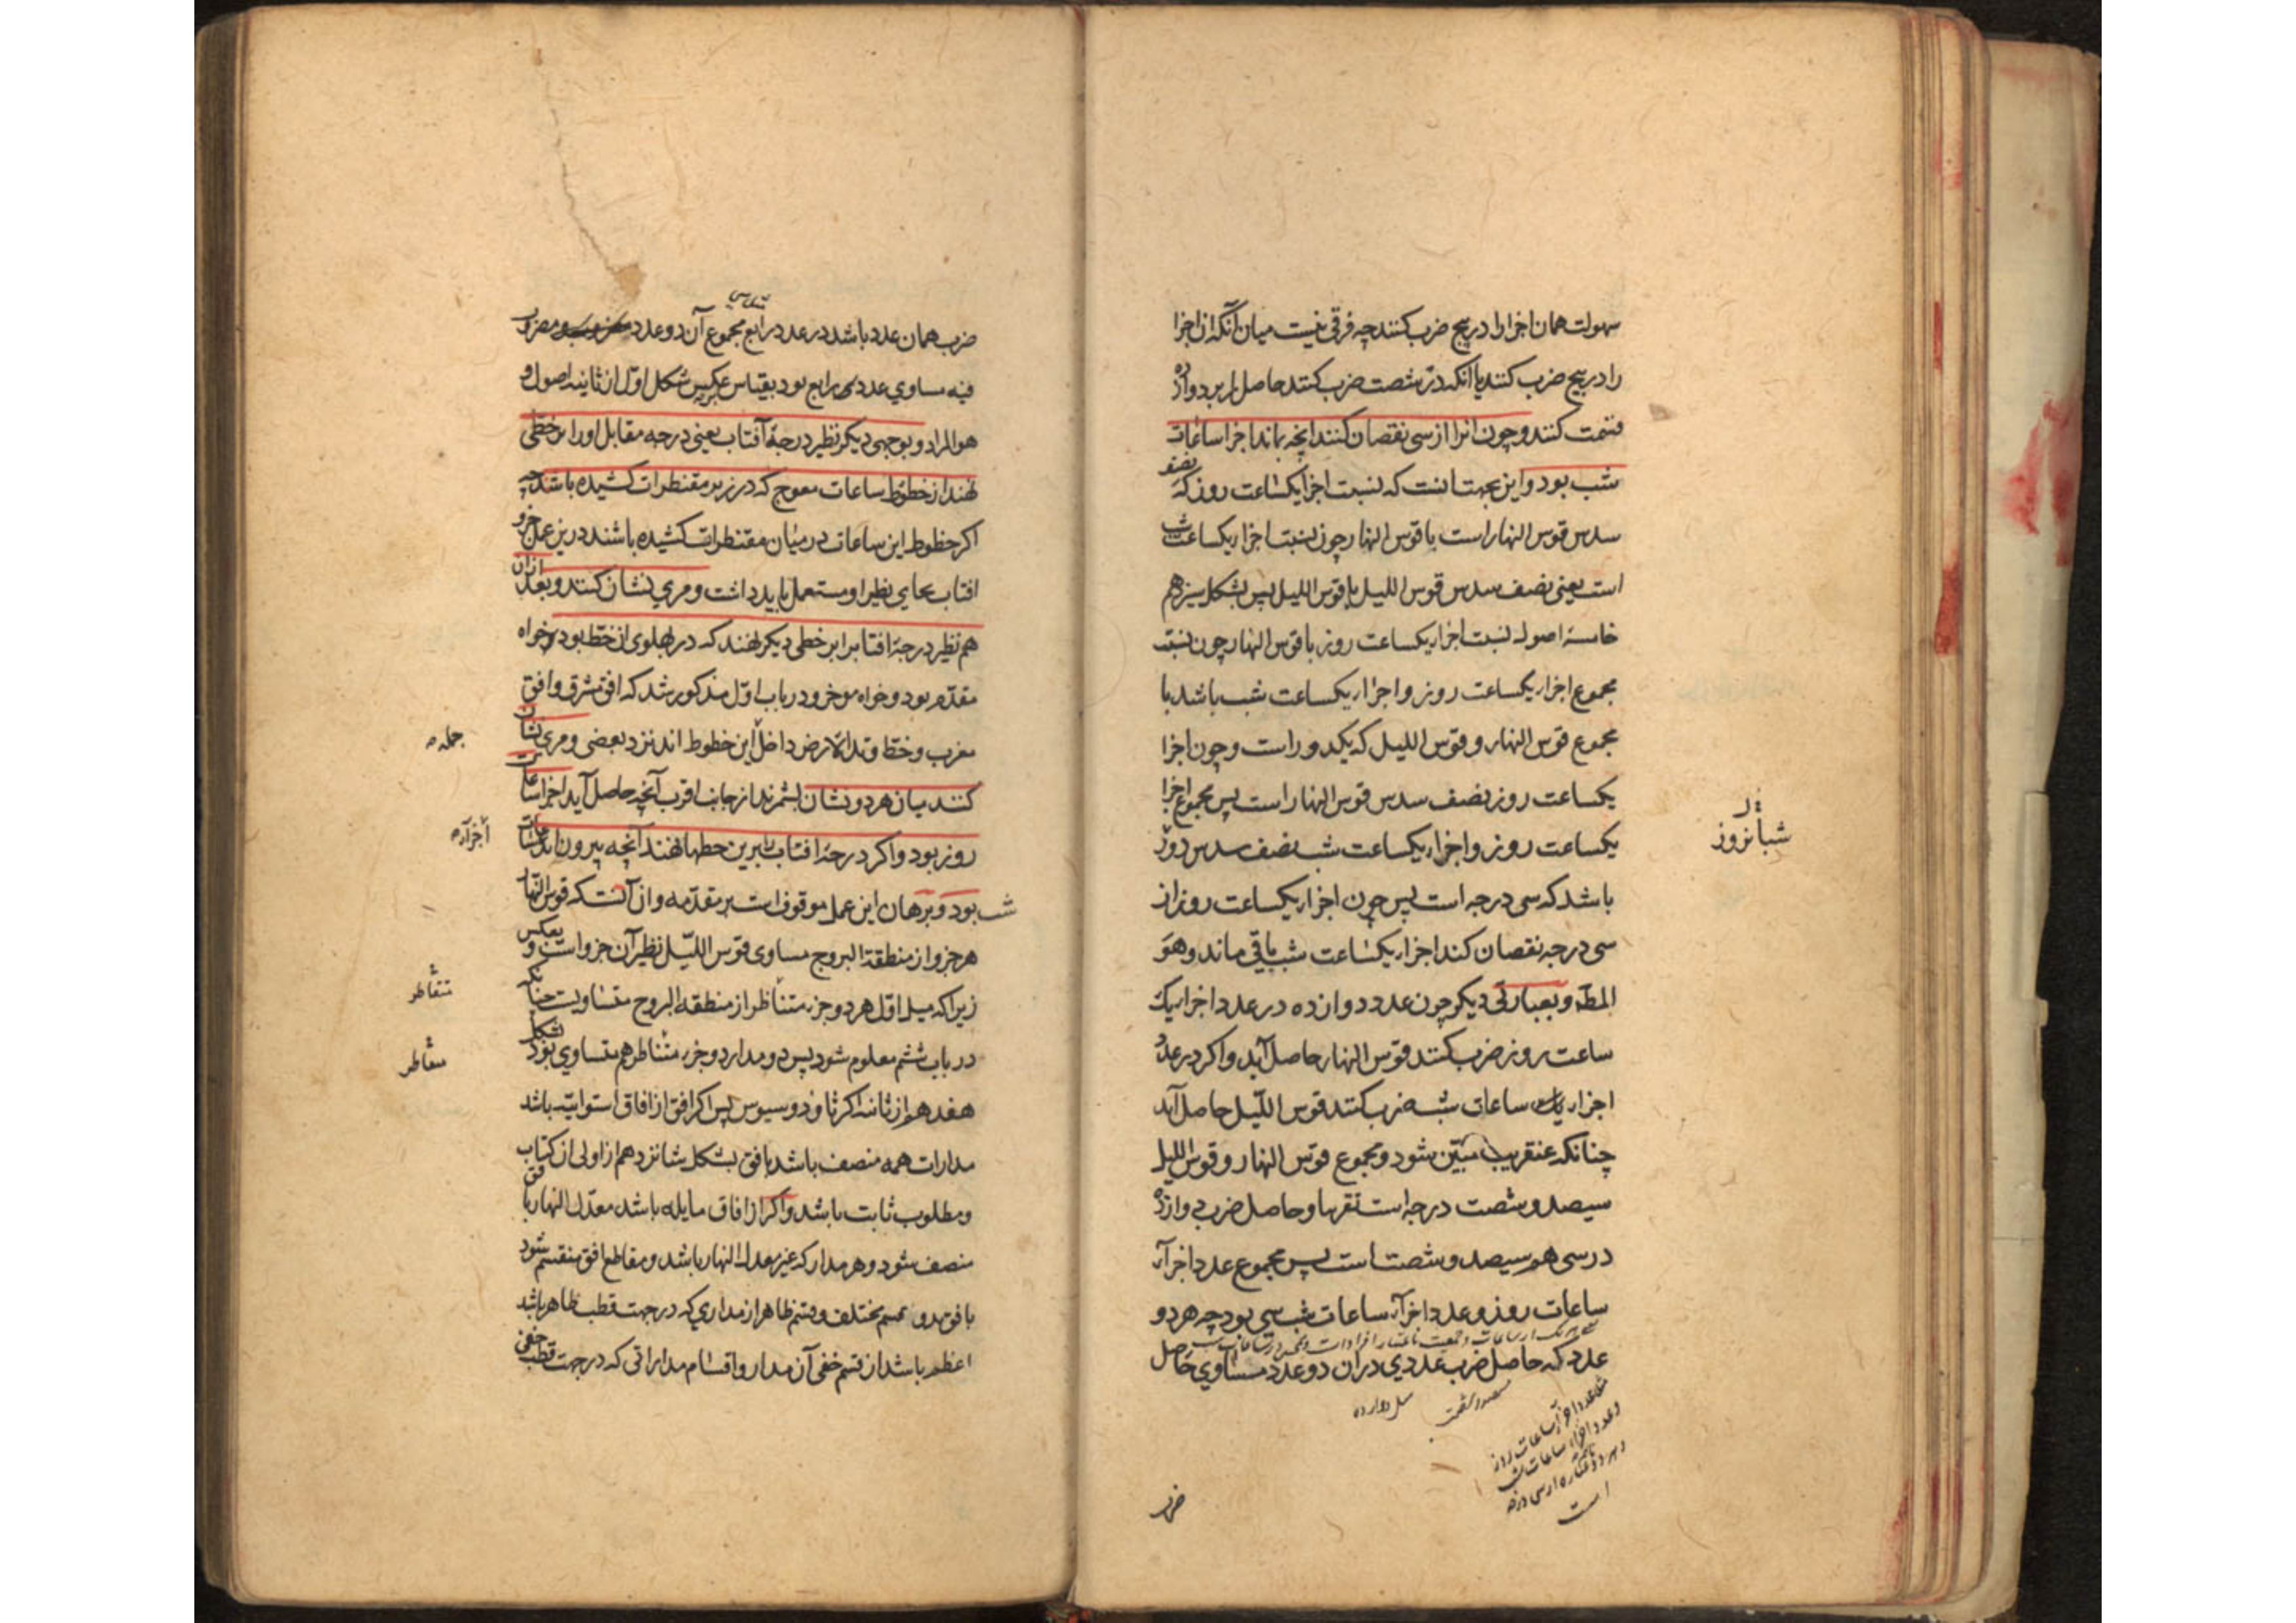 سهولت همان اجزا را در پنج ضرب کنند چه فرقی نیست میان آنکه از اجزا
را در پنج ضرب کنند یا آنکه در شصت ضرب کنند حاصل را بر دوازده
قسمت کنند و چون آنرا از سی نقصان کنند آنچه بماند اجزا ساعات
شب بود و این بجهت آنست که نسبت اجزا یکساعت روز که نصف
سدس قوس النهار است با قوس النهار چون نسبت اجزا یکساعت شب
است یعنی نصف سدس قوس اللیل با قوس اللیل پس بشکل سیزدهم
خامسهٔ اصول نسبت اجزا یکساعت روز با قوس النهار چون نسبت
مجموع اجزا یکساعت روز و اجزاء یکساعت شب باشد با
مجموع قوس النهار و قوس اللیل که یکدور است و چون اجزا
یکساعت روز نصف سدس قوس النهار است پس مجموع اجزا
یکساعت روز و اجزاء یکساعت شب نصف سدس دور
شبانروز
باشد که سی درجه است پس چون اجزاء یکساعت روز از
سی درجه نقصان کنند اجزاء یکساعت شب باقی ماند و هو
المط و بعبارتی دیگر چون عدد دوازده در عدد اجزاء یک
ساعت روز ضرب کنند قوس النهار حاصل آید و اگر در عدد
اجزاء یک ساعات شب ضرب کنند قوس اللیل حاصل آید
چنانکه عنقریب مبین شود و مجموع قوس النهار و قوس اللیل
سیصد و شصت درجه است تقریبا و حاصل ضرب دوازده
در سی هم سیصد و شصت است پس مجموع عدد اجزاء
ساعات روز و عدد اجزاء ساعات شب سی بود چه هر دو
عدد که حاصل ضرب عددی در آن دو عدد مساوی حاصل
سیصد و شصت
مثل دوازده
مثل عدد اجزاء ساعات روز
و عدد اجزاء ساعات شب
است
ضرب
ضرب همان عدد باشد در عدد رابع مجموع آن دو عدد مضروب
فیه مساوی عدد رابع بود بقیاس عکس شکل اول از ثانیه اصول و
هو المراد و بوجهی دیگر نظیر درجهٔ آفتاب یعنی درجه مقابل او را بر خطی
نهند از خطوط ساعات معوج که در زیر مقنطرات کشیده باشند چه
اگر خطوط این ساعات در میان مقنطرات کشیده باشند درین عمل جزو
افتاب بجای نظیر او مستعمل باید داشت و مری نشان کنند و بعد ازان
هم نظیر درجهٔ افتاب را بر خطی دیگر نهند که در پهلوی ان خط بود خواه
مقدم بود و خواه موخر و در باب اول مذکور شد که افق مشرق و افق
مغرب و خط وتد الارض داخل این خطوط اند نزد بعضی و مری نشان
جمله
کنند میان هر دو نشان بشمرند از جانب اقرب آنچه حاصل آید اجزا ساعات
روز بود و اگر درجهٔ افتاب بر این خطها نهند آنچه بیرون آید اجزا ساعات
اجزاء
شب بود و برهان این عمل موقوف است بر مقدمه و آن آنست که قوس النهار
هر جزو از منطقة البروج مساوی قوس اللیل نظیر آن جزو است و بعکس
زیرا که میل اول هر دو جزء متناظر از منطقه البروج متساویست چنانکه
متقاطر
در باب ششم معلوم شود پس دو مدار دو جزء متناظر هم متساوی بود بشکل
متقاطر
هفدهم از ثانیه اکر ثاوذوسیوس پس اگر افق از افاق استوائیه باشد
مدارات همه منصف باشد بافق بشکل شانزدهم از اولی از کتاب
و مطلوب ثابت باشد و اگر از افاق مایله باشد معدل النهار بافق
منصف شود و هر مدار که غیر معدل النهار باشد و مقاطع افق منقسم شود
بافق بدو قسم مختلف و قسم ظاهر از مداری که در جهت قطب ظاهر باشد
اعظم باشد از قسم خفی آن مدار و اقسام مداراتی که در جهت قطب خفی